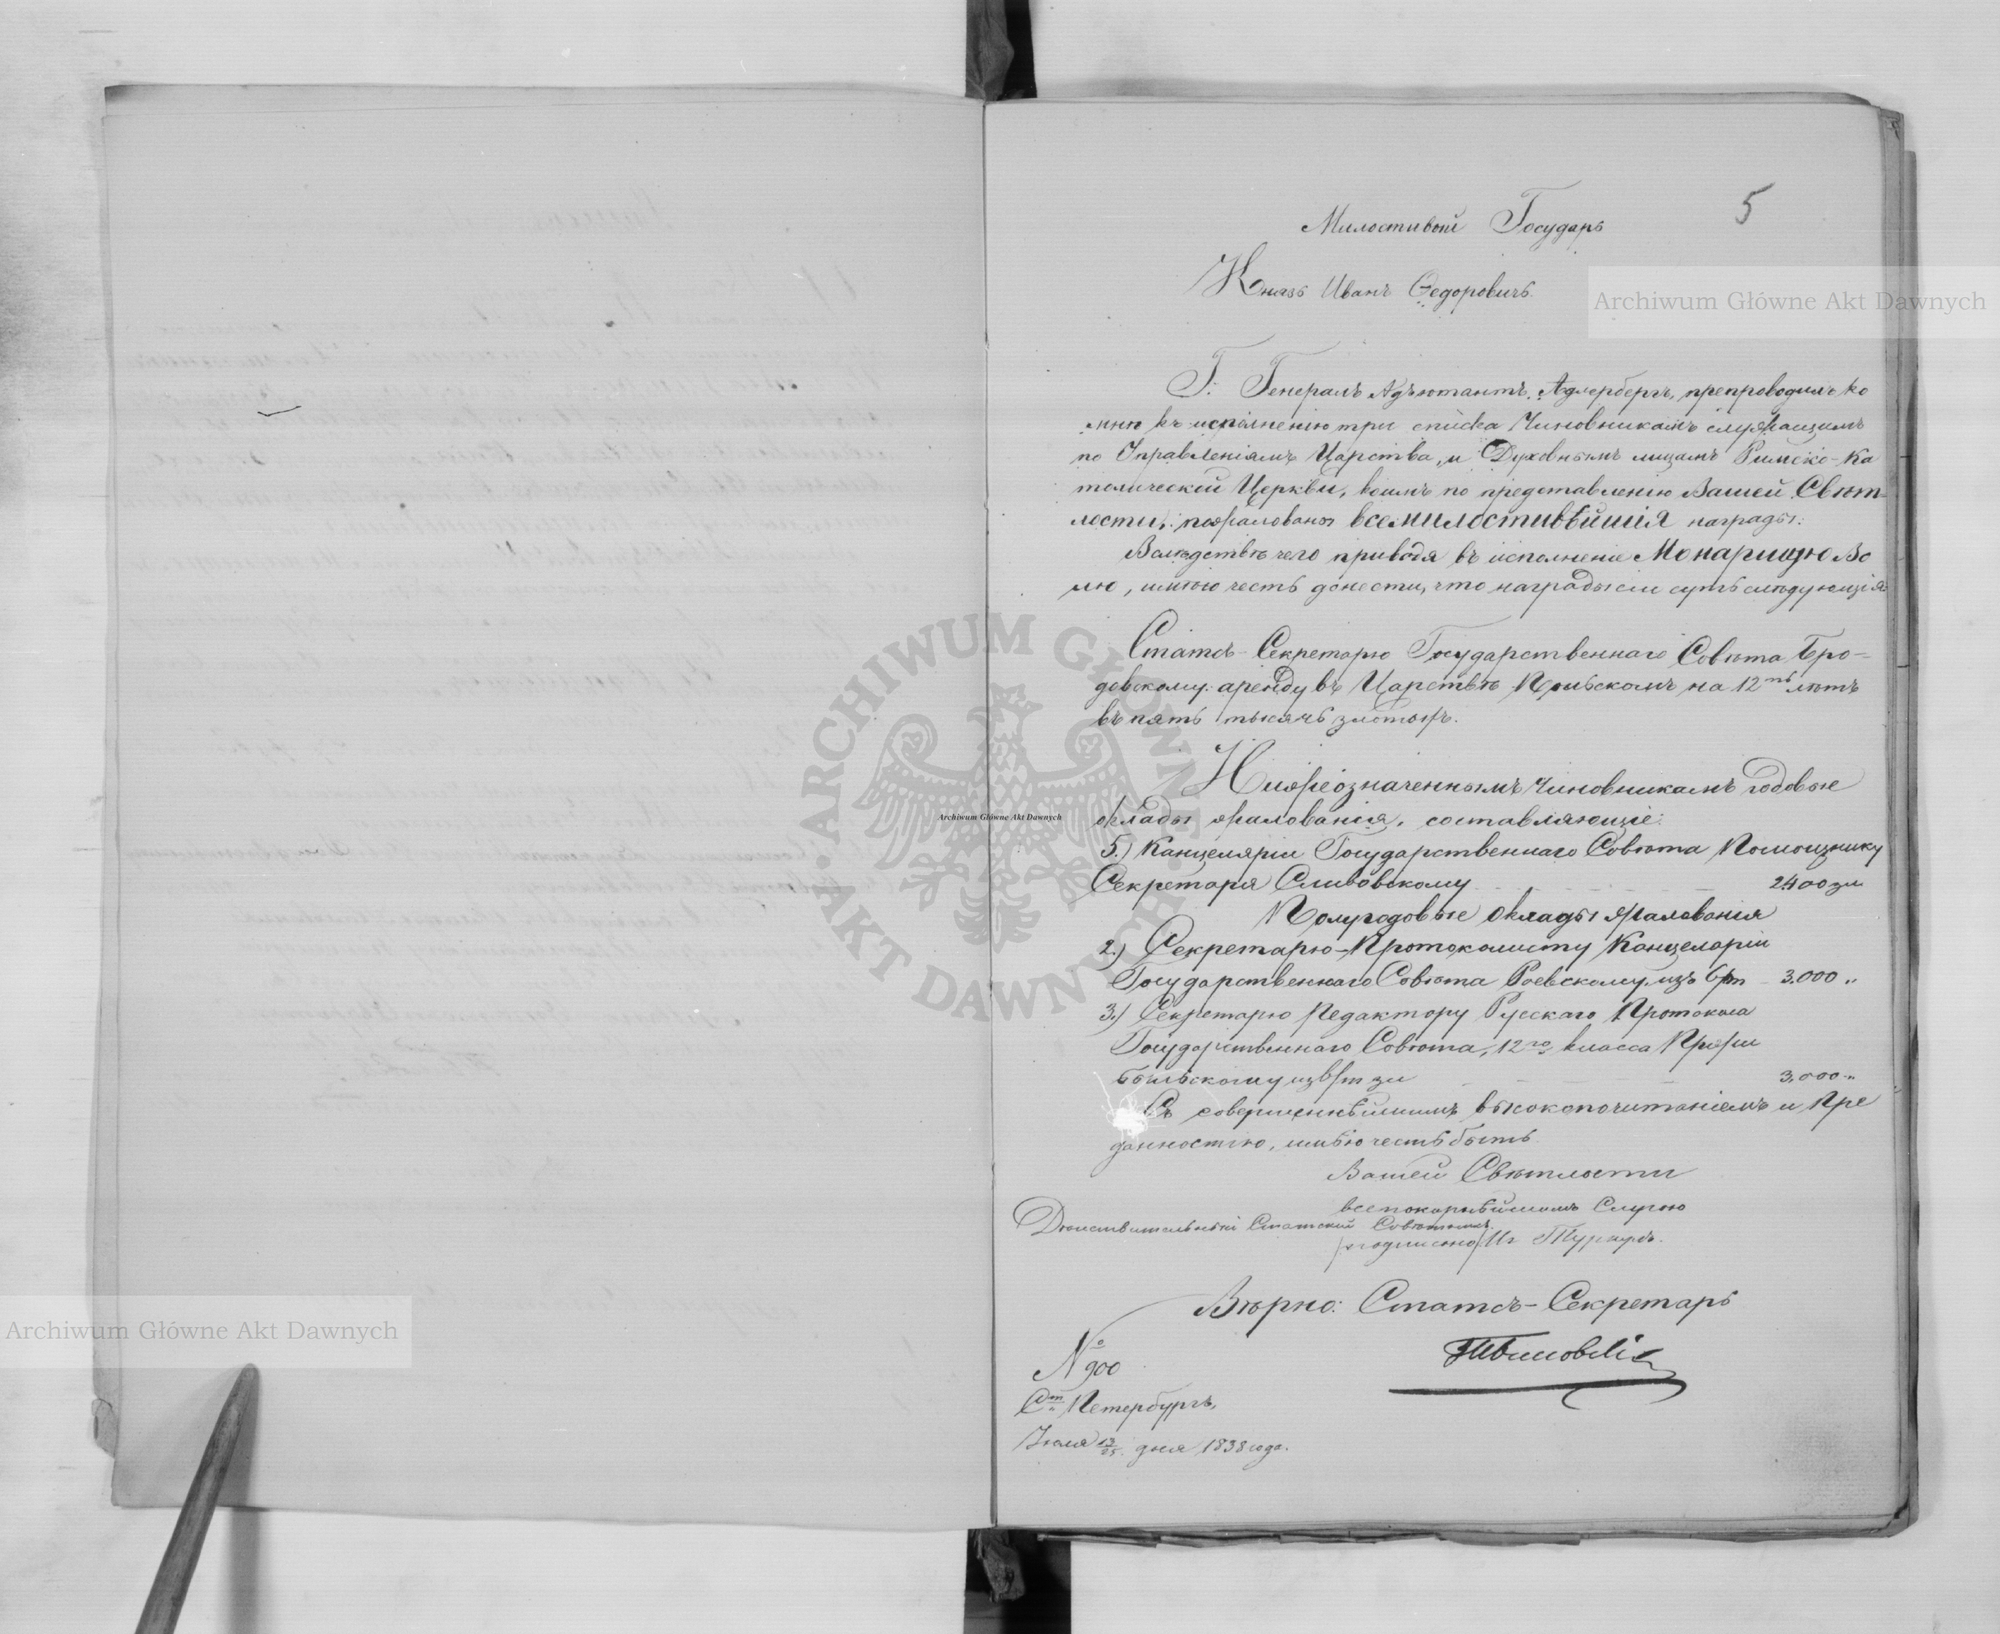 5
Милостивой Государь
Князь Иванъ Ѳедоровичь.
Г. Генералъ Адъютантъ, Адлербергъ, препроводилъ ко
мнѣ къ исполнению три списка Чиновникамъ служащимъ
по Управленіямъ Царства, и Духовнымъ лицамъ Римско-Ка
толической Церкви, коимъ по представленію Вашей Свѣт-
лости, пожалованы всемилостивѣйшія награды.
Вслѣдствѣе чего приводя въ исполненіе Монаршую Во
лю, имѣю честь донести, что награды сіи суть слѣдующія
Статсъ-Секретарю Государственнаго Совѣта Бро-
довскому аренду въ Царствѣ Польскомъ на 12ть лѣтъ
въ пять тысячь злотыхъ.
Нижеозначеннымъ чиновникамъ годовые
оклады жалованія, составляющіе:
5.) Канцеляріи Государственнаго Совѣта Помощнику
Секретаря Сливовскому 2400 зл
Полугодовые оклады жалованія
2.) Секретарю-Протоколисту Канцеляріи
Государственнаго Совѣта Раевскому изъ 6/т 3.000 „
3.) Секретарю Редактору Русскаго Протокола
Государственнаго Совѣта, 12го класса Пржи
быльскому из 6/т зл 3,000 „
Съ совершеннѣйшимъ высокопочитаніемъ и пре
данностію, имѣю честь быть
Вашей Свѣтлости
всепокорнѣйшимъ Слугою
Дѣйствительный Статскій Совѣтникъ
/подписано/ Иг Туркулъ.
Вѣрно: Статсъ-Секретарь
№ 900
Ст Петербургъ,
Іюля 13/25 дня 1838 года.
Archiwum Główne Akt Dawnych
Archiwum Główne Akt Dawnych
Archiwum Główne Akt Dawnych
ARCHIWUM GŁÓWNE AKT DAWNYCH